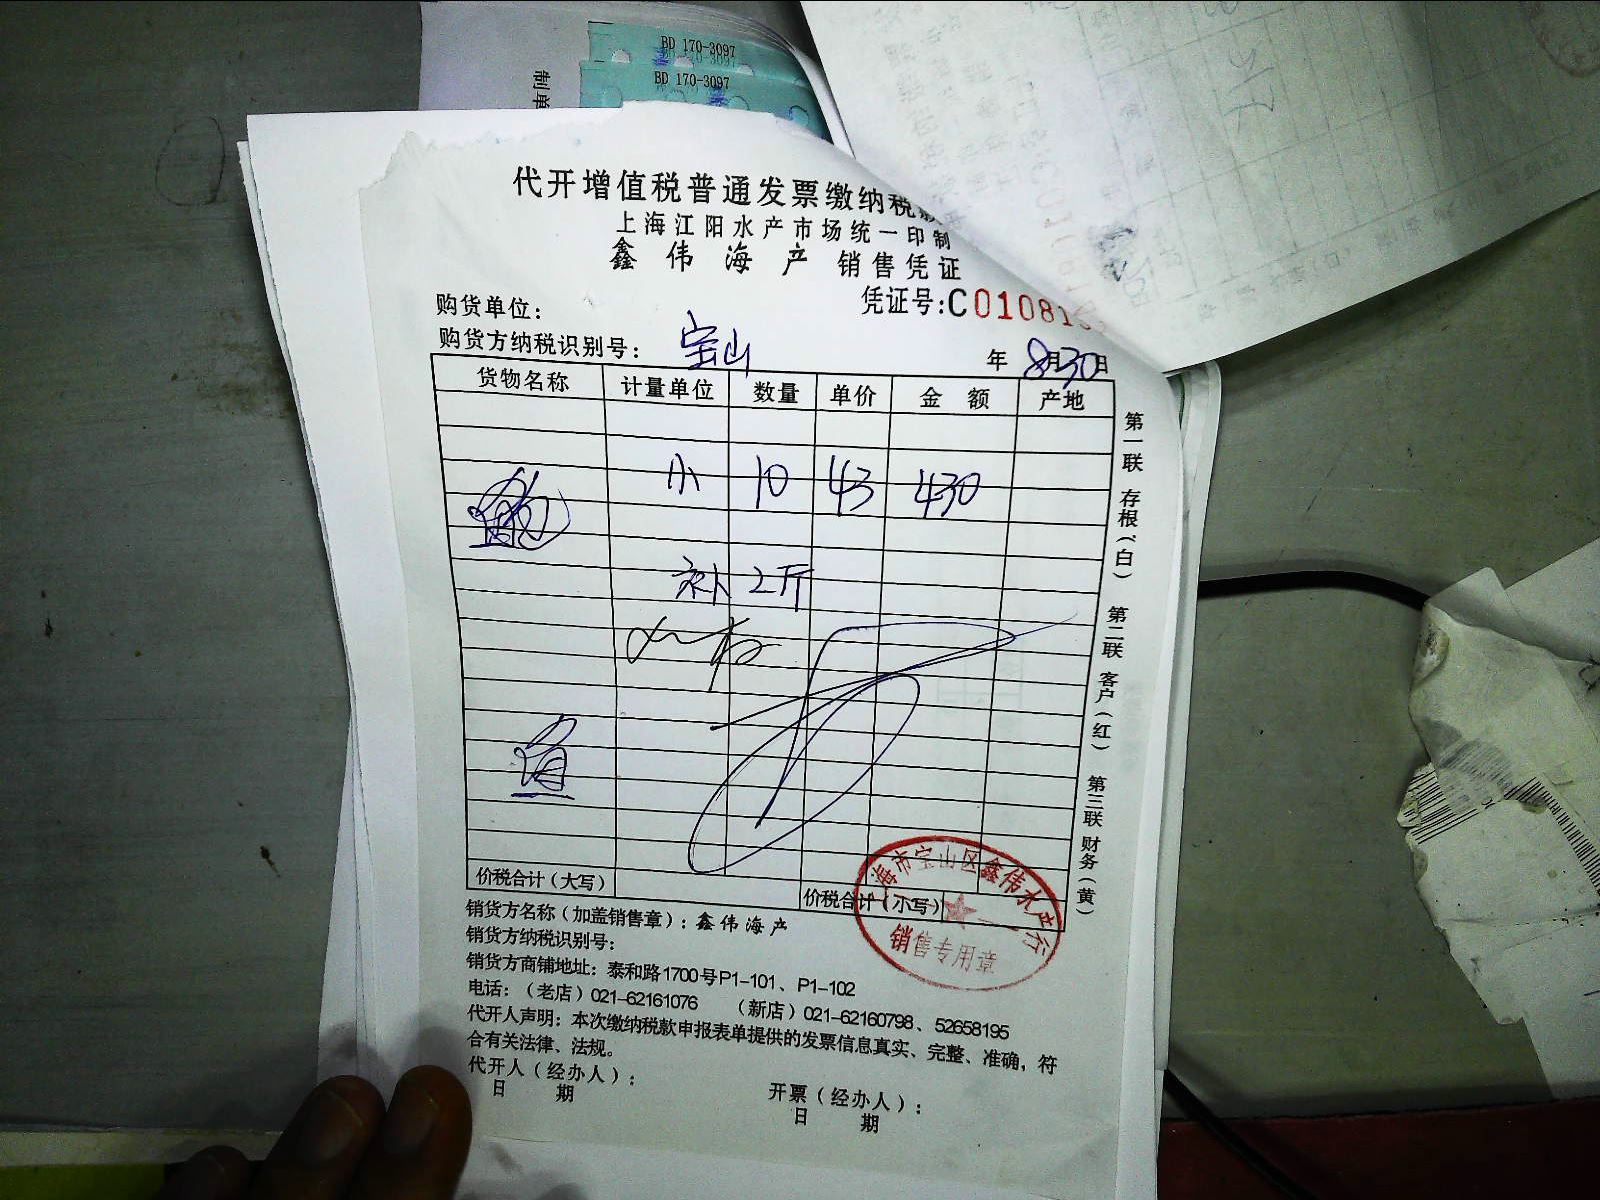 BD 170-3097
BD 170-3097
制单
代开增值税普通发票缴纳税
上海江阳水产市场统一印制
鑫伟海产 销售凭证
凭证号:C01081
购货单位:
购货方纳税识别号: 宝山
年 8月30日
货物名称 计量单位 数量 单价 金额 产地
小 10 43 430
补 2斤
价税合计(大写) 价税合计(小写)
第一联 存根(白) 第二联 客户(红) 第三联 财务(黄)
海市宝山区鑫伟水产行
销售专用章
销货方名称(加盖销售章):鑫伟海产
销货方纳税识别号:
销货方商铺地址:泰和路1700号P1-101、P1-102
电话:(老店)021-62161076 (新店)021-62160798、52658195
代开人声明:本次缴纳税款申报表单提供的发票信息真实、完整、准确,符
合有关法律、法规。
代开人(经办人): 开票(经办人):
日 期 日 期